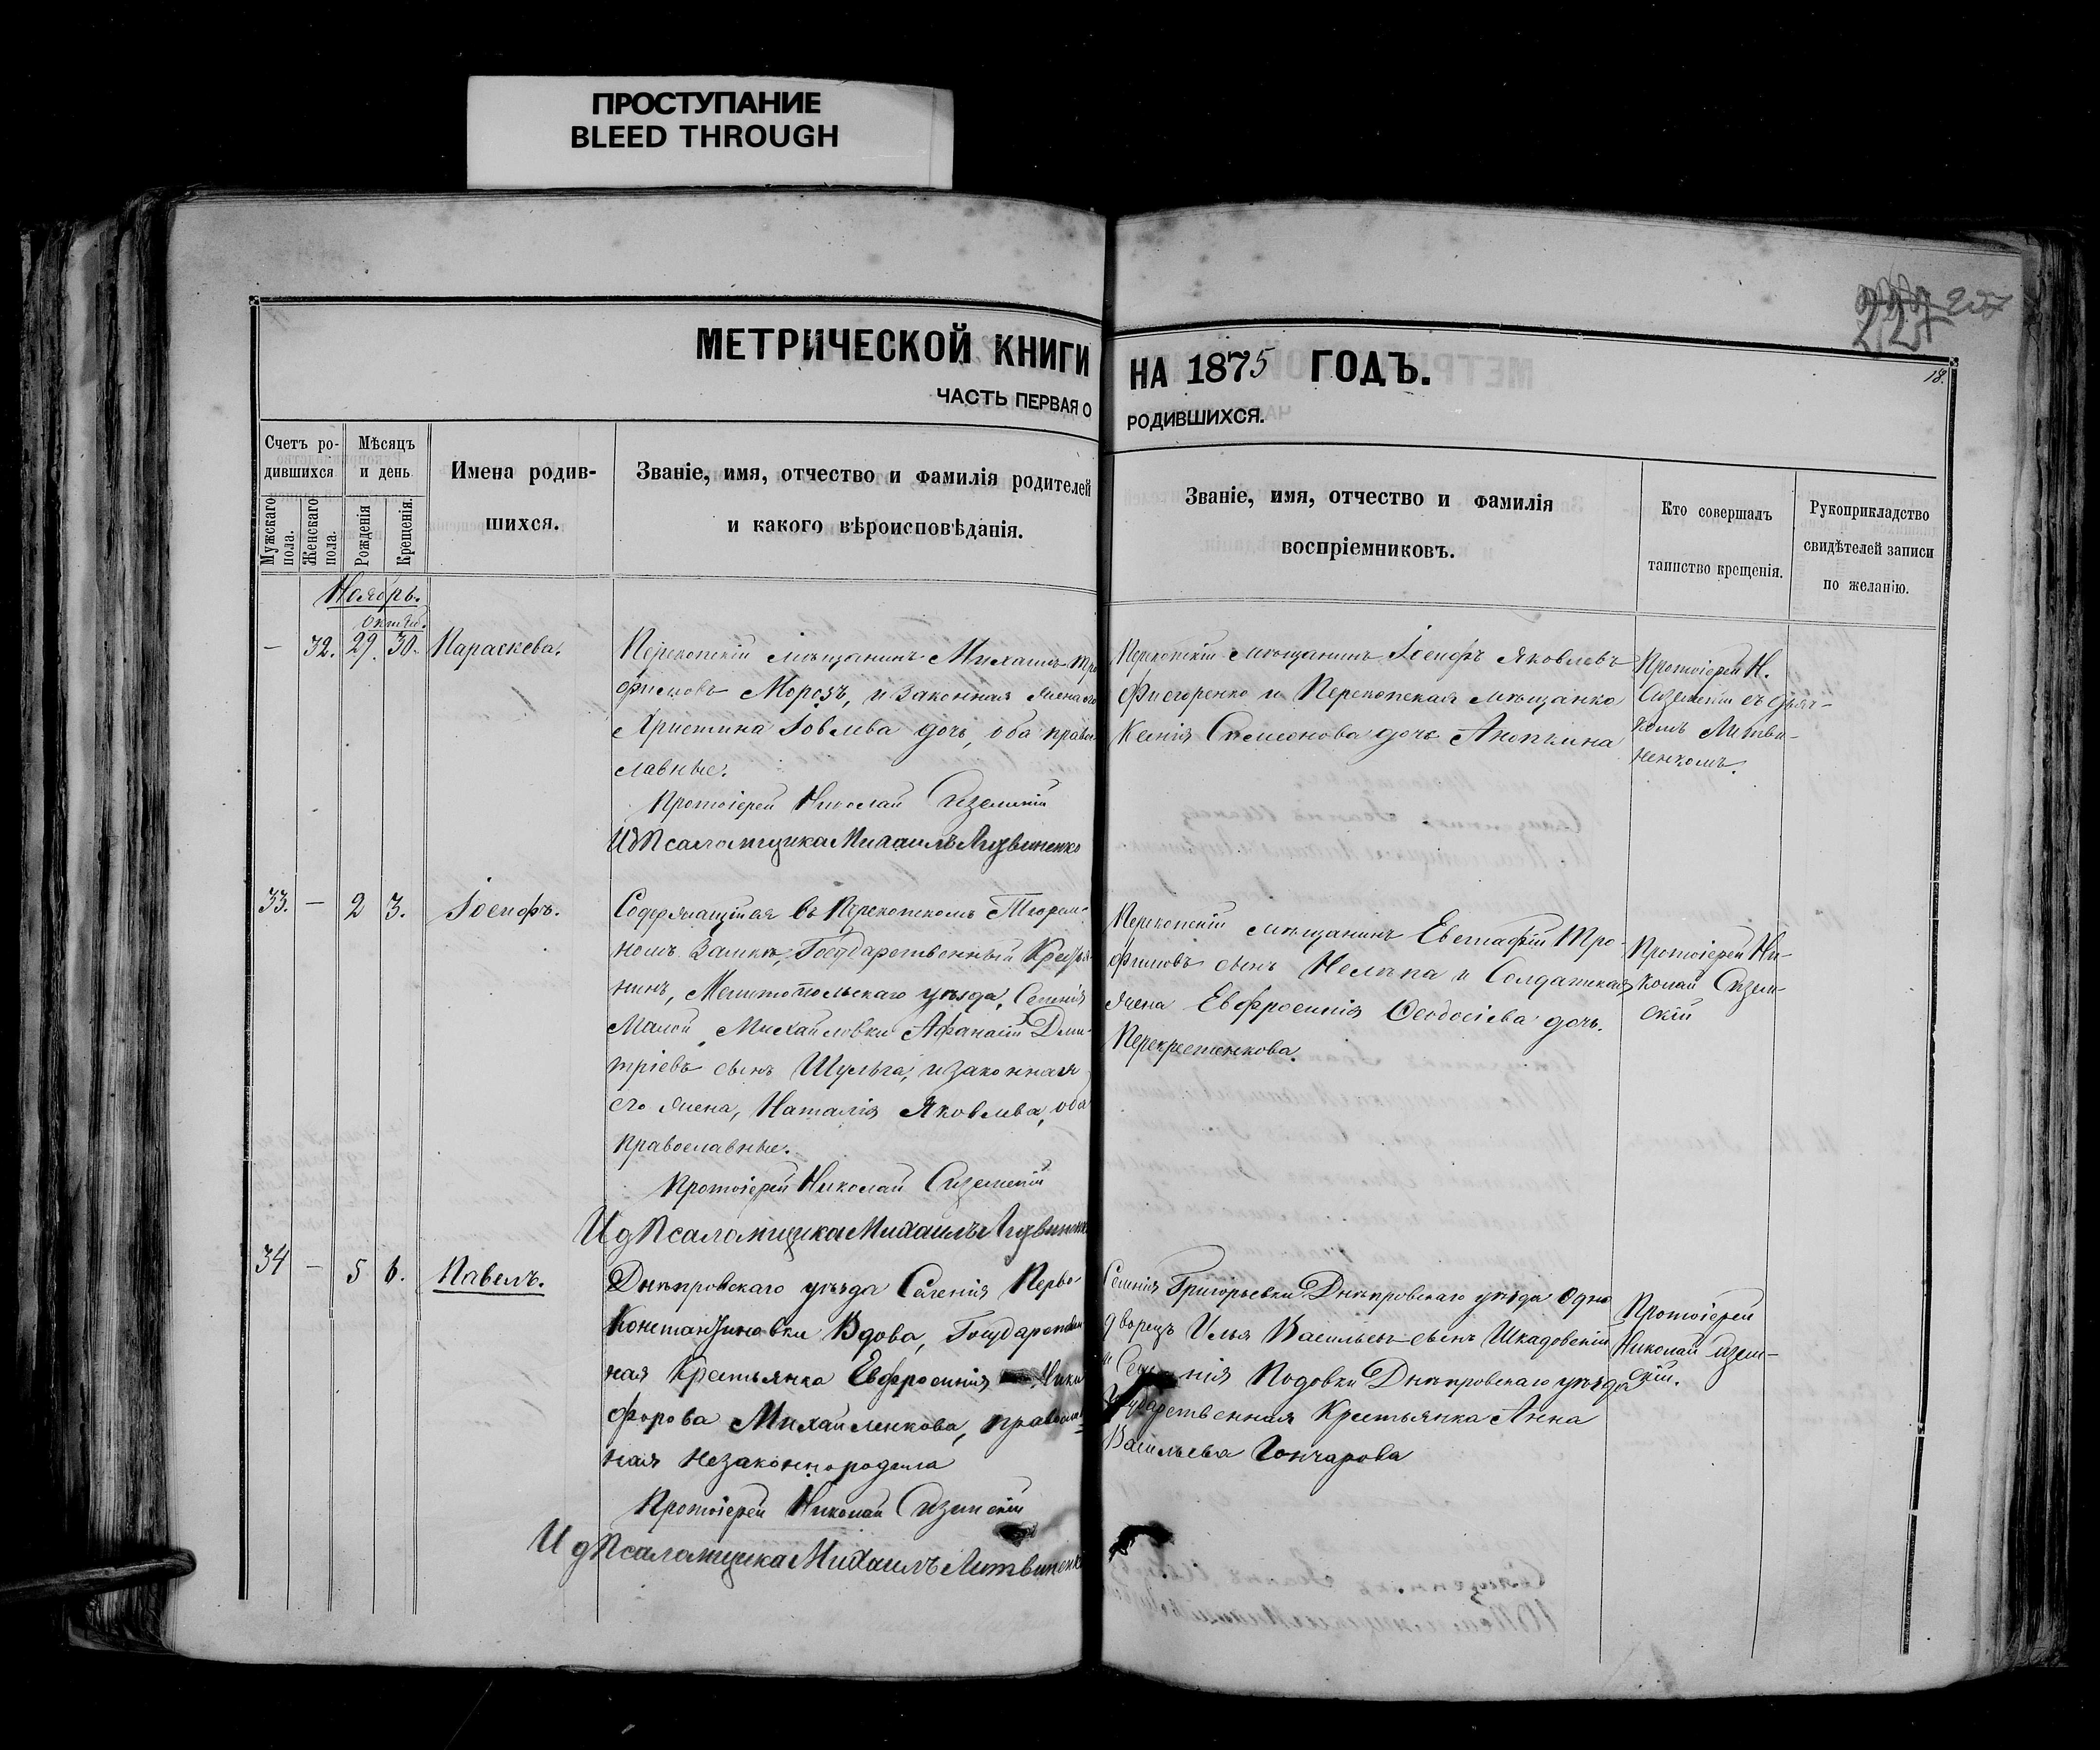 ПРОСТУПАНИЕ
BLEED THROUGH
227
18.
МЕТРИЧЕСКОЙ КНИГИ НА 1875 ГОДЪ.
ЧАСТЬ ПЕРВАЯ О РОДИВШИХСЯ.
Счетъ ро-
дившихся
Мужскаго
пола.
Женскаго
пола.
Мѣсяцъ
и день
Рожденія
Крещенія.
Имена родив-
шихся.
Званіе, имя, отчество и фамилія родителей
и какого вѣроисповѣданія.
Званіе, имя, отчество и фамилія
воспріемниковъ.
Кто совершалъ
таинство крещенія.
Рукоприкладство
свидѣтелей записи
по желанію.
Ноябрь.
Октяб.
— 32. 29. 30. Параскева.
Перекопскій мѣщанинъ Михаилъ Тро
фимовъ Морозъ, и законная жена его
Христина Іовлева дочь, оба право
славные.
Протоіерей Николай Сиземскій
ИД Псаломщика Михаилъ Литвиненко
Перекопскій мѣщанинъ Іосифъ Яковлевъ
и Перекопская мѣщанка
Ксенія Симеонова дочь
Протоіерей Н.
Сиземскій съ дьяч-
комъ Литви-
ненкомъ.
33. — 2 3. Іосифъ.
Содержащійся въ Перекопскомъ Тюрем-
номъ Замкѣ, Государственный Крестья
нинъ, Мелитопольскаго уѣзда, Селенія
Малой Михайловки Афанасій Дми-
тріевъ сынъ Шульга, и законная
его жена, Наталія Яковлева, оба
Православные.
Протоіерей Николай Сиземскій
И д Псаломщика Михаилъ Литвиненко
Перекопскій мѣщанинъ Евстафій Тро-
фимовъ сынъ Нелѣпа и Солдатская
жена Евфросинія Ѳеодосіева дочь
Перекрестенкова.
Протоіерей Ни-
колай Сизем-
скій
34 — 5 6. Павелъ.
Днѣпровскаго уѣзда Селенія Перво
Константиновки Вдова, Государствен
ная Крестьянка Евфросинія Ники
форова Михайленкова, православ
ная незаконнородила
Протоіерей Николай Сиземскій
И д Псаломщика Михаилъ Литвиненко
Селенія Григорьевки Днѣпровскаго уѣзда Одно
дворецъ Илья Васильевъ сынъ Шкадовскій
и Селенія Подовки Днѣпровскаго уѣзда
Государственная Крестьянка Анна
Васильева Гончарова
Протоіерей
Николай Сизем-
скій.